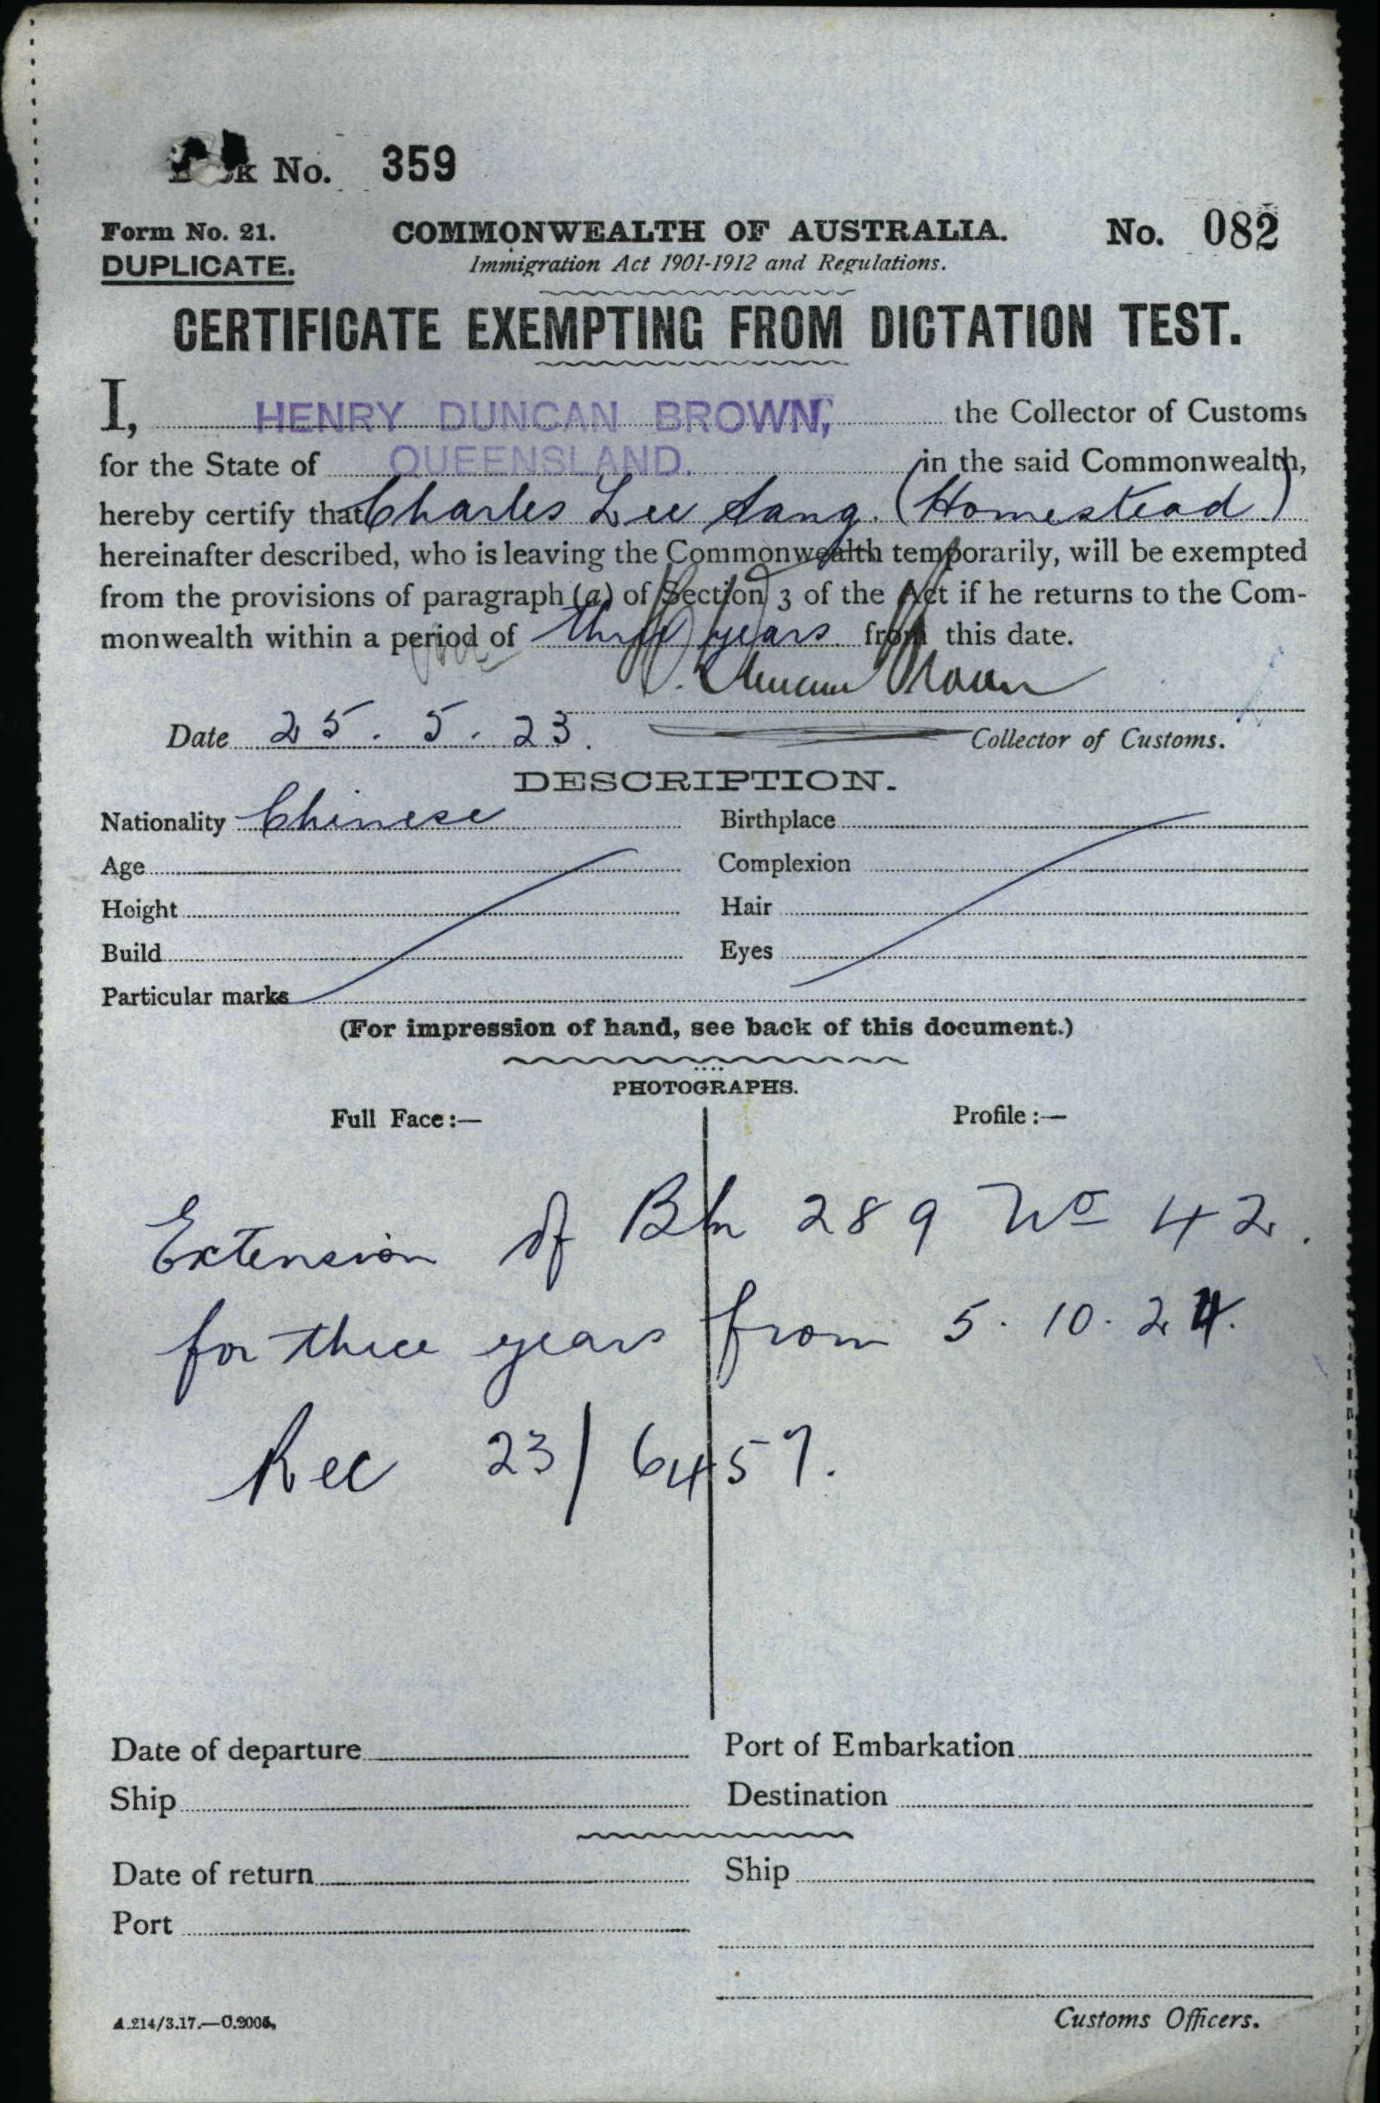 Book No. 359
Form No. 21. COMMONWEALTH OF AUSTRALIA. No. 082
DUPLICATE. Immigration Act 1901-1912 and Regulations.
CERTIFICATE EXEMPTING FROM DICTATION TEST.
I, HENRY DUNCAN BROWN, the Collector of Customs
for the State of QUEENSLAND. in the said Commonwealth,
hereby certify that Charles Lee Sang. (Homestead)
hereinafter described, who is leaving the Commonwealth temporarily, will be exempted
from the provisions of paragraph (a) of Section 3 of the Act if he returns to the Com-
monwealth within a period of three years from this date.
H. Duncan Brown
Date 25. 5. 23. Collector of Customs.
DESCRIPTION.
Nationality Chinese Birthplace
Age Complexion
Height Hair
Build Eyes
Particular marks
(For impression of hand, see back of this document.)
PHOTOGRAPHS.
Full Face:— Profile:—
Extension of Bk 289 No 42.
for three years from 5. 10. 24.
Rec 23/6457.
Date of departure Port of Embarkation
Ship Destination
Date of return Ship
Port
A.214/3.17.—C.2005. Customs Officers.